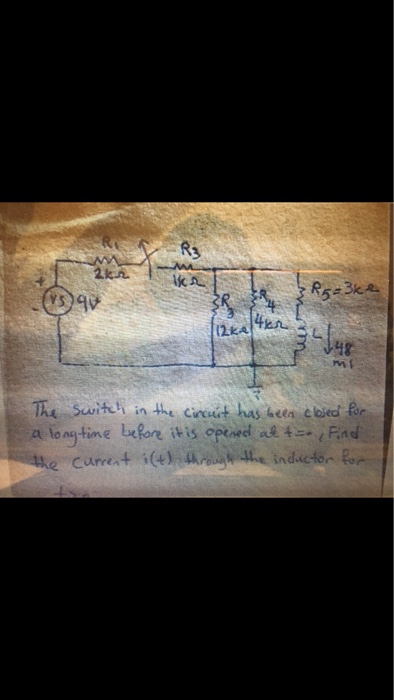 R1
2kΩ
R3
1kΩ
+
VS
-
9V
R3
12kΩ
R4
4kΩ
R5=3kΩ
L
48
The switch in the circuit has been closed for
a long time before it is opened at t=0, Find
the current i(t) through the inductor for